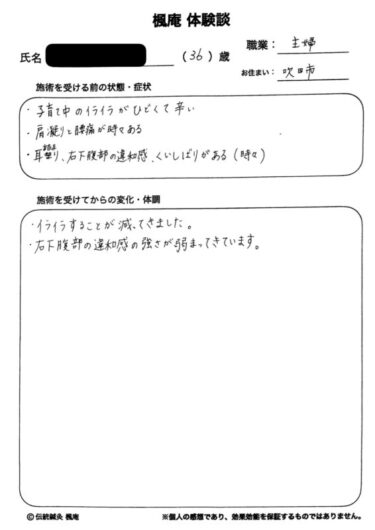 楓庵 体験談
氏名 （36）歳
職業： 主婦
お住まい： 吹田市
施術を受ける前の状態・症状
・子育て中のイライラがひどくて辛い
・肩凝りと腰痛が時々ある
・耳鳴り、右下腹部の違和感、くいしばりがある（時々）
施術を受けてからの変化・体調
・イライラすることが減ってきました。
・右下腹部の違和感の強さが弱まってきています。
© 伝統鍼灸 楓庵 ※個人の感想であり、効果効能を保証するものではありません。